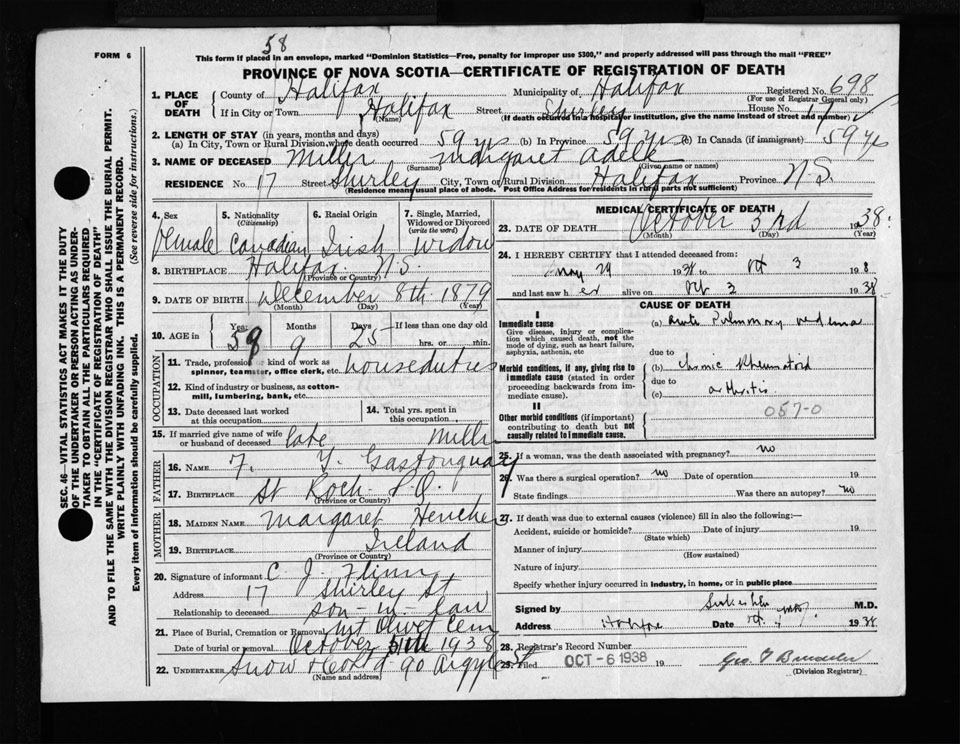 58
FORM 6
This form if placed in an envelope, marked "Dominion Statistics—Free, penalty for improper use $300," and properly addressed will pass through the mail "FREE"
PROVINCE OF NOVA SCOTIA—CERTIFICATE OF REGISTRATION OF DEATH
1. PLACE OF DEATH County of Halifax Municipality of Halifax Registered No. 698
(For use of Registrar General only)
If in City or Town Halifax Street Shirley House No. 17
(Name) (If death occurred in a hospital or institution, give the name instead of street and number)
2. LENGTH OF STAY (in years, months and days)
(a) In City, Town or Rural Division where death occurred 59 yrs (b) In Province 59 yrs (c) In Canada (if immigrant) 59 yrs
3. NAME OF DECEASED Miller Margaret Adele
(Surname) (Given name or names)
RESIDENCE No. 17 Street Shirley City, Town or Rural Division Halifax Province N.S.
(Residence means usual place of abode. Post Office Address for residents in rural parts not sufficient)
SEC. 46—VITAL STATISTICS ACT MAKES IT THE DUTY
OF THE UNDERTAKER OR PERSON ACTING AS UNDER-
TAKER TO OBTAIN ALL THE PARTICULARS REQUIRED
IN THE "CERTIFICATE OF REGISTRATION OF DEATH"
AND TO FILE THE SAME WITH THE DIVISION REGISTRAR WHO SHALL ISSUE THE BURIAL PERMIT.
WRITE PLAINLY WITH UNFADING INK. THIS IS A PERMANENT RECORD.
Every item of information should be carefully supplied. (See reverse side for instructions.)
4. Sex 5. Nationality (Citizenship) 6. Racial Origin 7. Single, Married, Widowed or Divorced (write the word)
Female Canadian Irish Widow
8. BIRTHPLACE Halifax N.S.
(Province or Country)
9. DATE OF BIRTH December 8th 1879
(Month) (Day) (Year)
10. AGE in Years Months Days If less than one day old
58 9 25 hrs. or min.
OCCUPATION
11. Trade, profession or kind of work as spinner, teamster, office clerk, etc. house duties
12. Kind of industry or business, as cotton-mill, lumbering, bank, etc.
13. Date deceased last worked at this occupation 14. Total yrs. spent in this occupation
15. If married give name of wife or husband of deceased late Miller
FATHER
16. NAME F. Y. Gastonguay
17. BIRTHPLACE St Roch P.Q.
(Province or Country)
MOTHER
18. MAIDEN NAME Margaret
19. BIRTHPLACE Ireland
(Province or Country)
20. Signature of informant C. J. Flinn
Address 17 Shirley St
Relationship to deceased son-in-law
21. Place of Burial, Cremation or Removal Mt Olivet Cem
Date of burial or removal October 5th 1938
22. UNDERTAKER Snow & Co Ltd 90 Argyle St
(Name and address)
MEDICAL CERTIFICATE OF DEATH
23. DATE OF DEATH October 3rd 1938
(Month) (Day) (Year)
24. I HEREBY CERTIFY that I attended deceased from:
May 29 1938 to Oct 3 1938
and last saw her alive on Oct 3 1938
CAUSE OF DEATH
I
Immediate cause (a) Acute Pulmonary oedema
Give disease, injury or complication which caused death, not the mode of dying, such as heart failure, asphyxia, asthenia, etc due to
Morbid conditions, if any, giving rise to immediate cause (stated in order proceeding backwards from immediate cause). (b) Chronic Rheumatoid
due to
(c) arthritis
II
057-0
Other morbid conditions (if important) contributing to death but not causally related to immediate cause.
25. If a woman, was the death associated with pregnancy? no
26. Was there a surgical operation? no Date of operation 19
State findings Was there an autopsy? no
27. If death was due to external causes (violence) fill in also the following:—
Accident, suicide or homicide? Date of injury 19
(State which)
Manner of injury
(How sustained)
Nature of injury
Specify whether injury occurred in industry, in home, or in public place
Signed by M.D.
Address Halifax Date Oct 1938
28. Registrar's Record Number
29. Filed OCT - 6 1938 19
(Division Registrar)